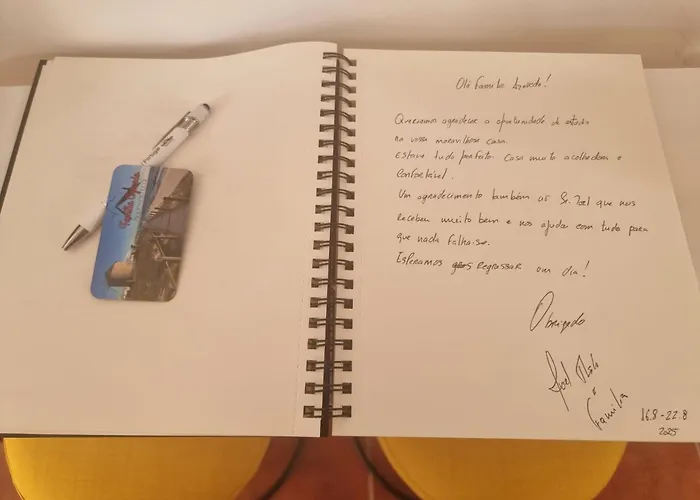 Olá Família Azevedo!
Queríamos agradecer a oportunidade de estadia
na vossa maravilhosa casa.
Esteve tudo perfeito. Casa muito acolhedora e
Confortável.
Um agradecimento também ao Sr. Joel que nos
recebeu muito bem e nos ajudou com tudo para
que nada falhasse.
Esperamos regressar um dia!
Obrigado
Joel
e
Família
16.8-22.8
2025